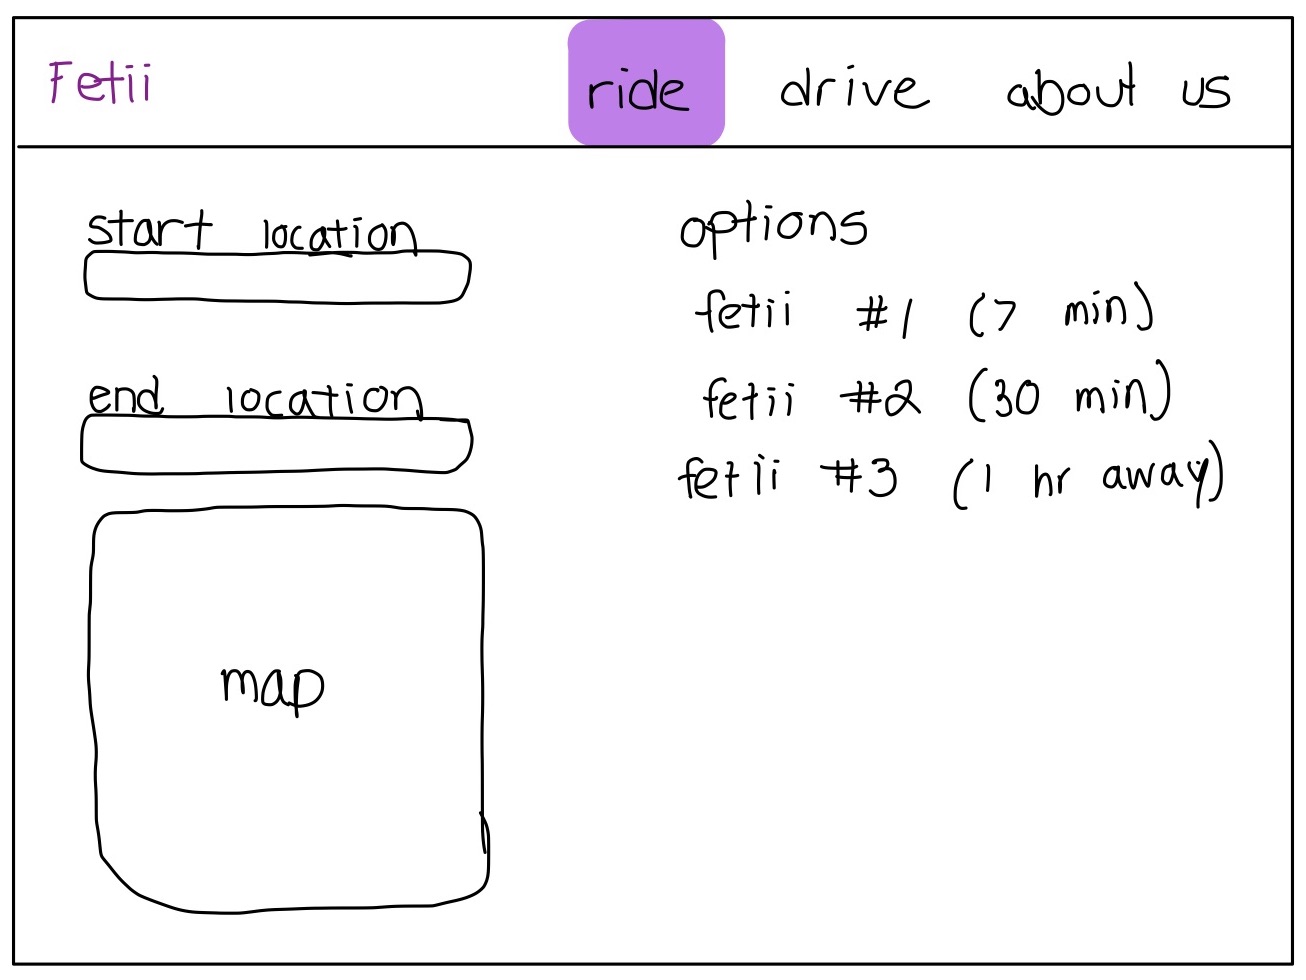 Fetii
ride drive about us
start location
end location
map
options
fetii #1 (7 min)
fetii #2 (30 min)
fetii #3 (1 hr away)